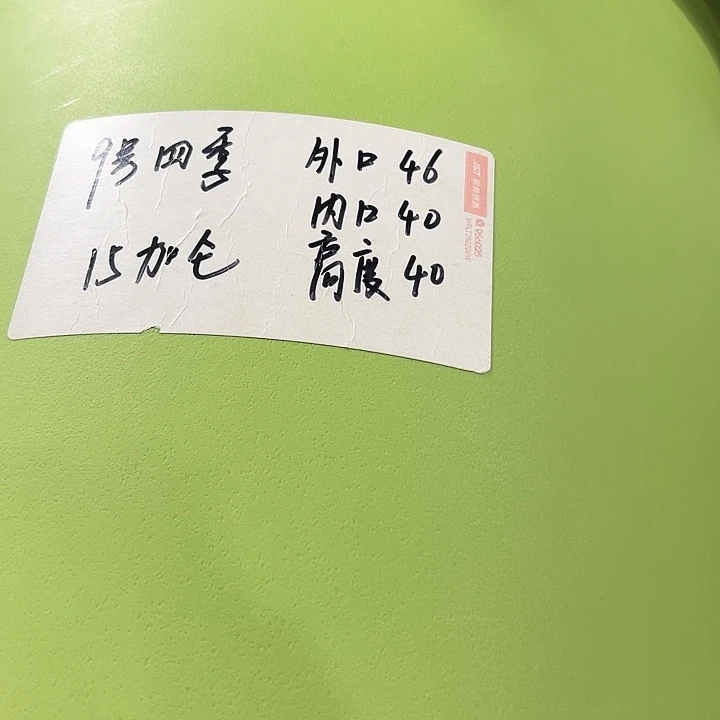 9号四季
15加仑
外口 46
内口 40
高度 40
J&T